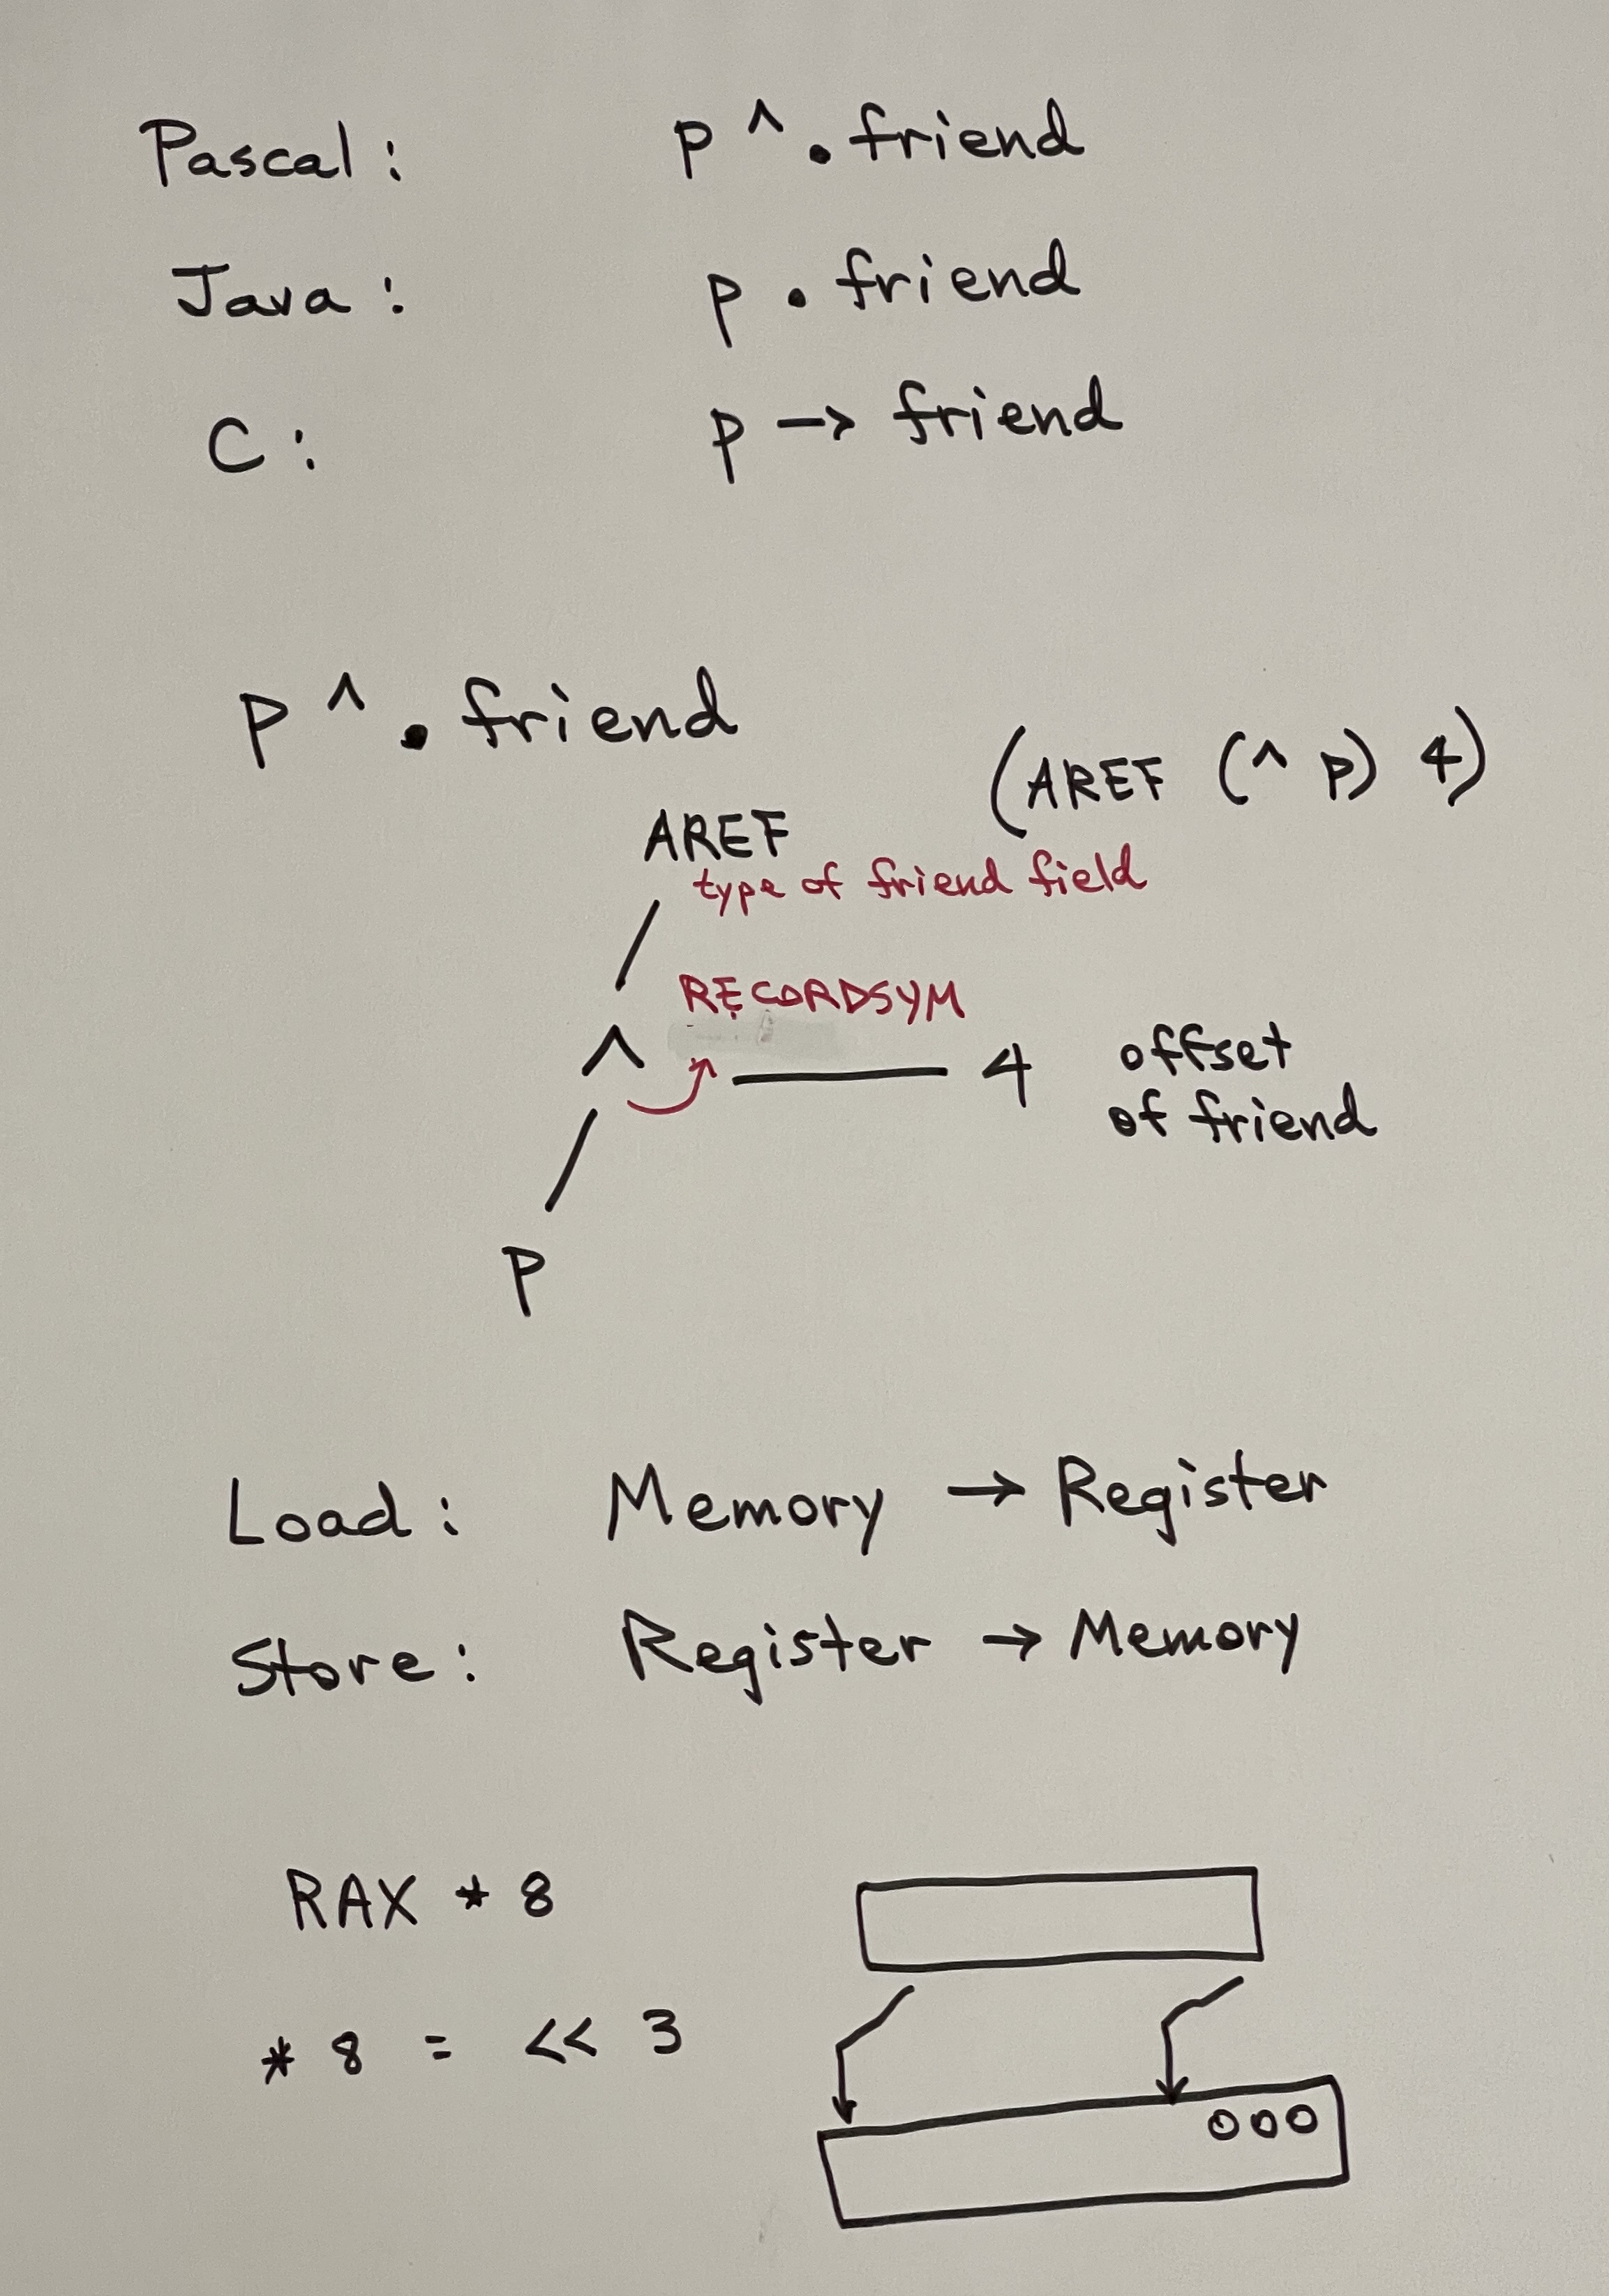 Pascal: p ^ . friend
Java: p . friend
C: p → friend
p ^ . friend
(AREF (^ p) 4)
AREF
type of friend field
RECORDSYM
^ 4 offset
of friend
p
Load: Memory → Register
Store: Register → Memory
RAX * 8
* 8 = << 3
000